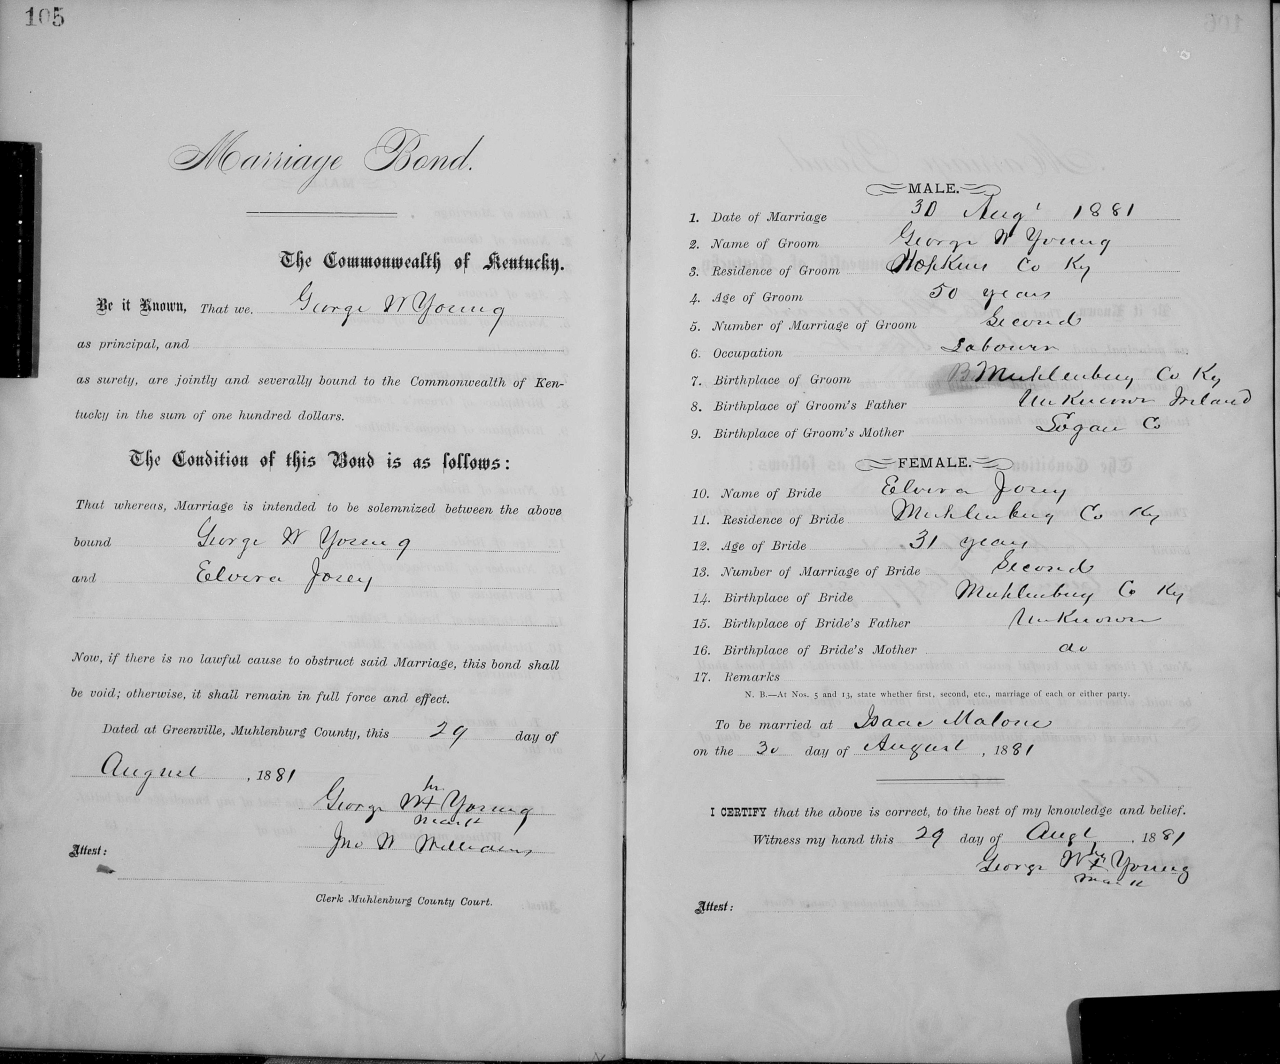 105
Marriage Bond.
The Commonwealth of Kentucky.
Be it Known, That we, George W Young
as principal, and
as surety, are jointly and severally bound to the Commonwealth of Ken-
tucky in the sum of one hundred dollars.
The Condition of this Bond is as follows:
That whereas, Marriage is intended to be solemnized between the above
bound George W Young
and Elvira Josey
Now, if there is no lawful cause to obstruct said Marriage, this bond shall
be void; otherwise, it shall remain in full force and effect.
Dated at Greenville, Muhlenburg County, this 29 day of
August, 1881
his
George W X Young
mark
Jno W Williams
Attest:
Clerk Muhlenburg County Court.
MALE.
1. Date of Marriage 30 Aug' 1881
2. Name of Groom George W Young
3. Residence of Groom Hopkins Co Ky
4. Age of Groom 50 years
5. Number of Marriage of Groom Second
6. Occupation Labourer
7. Birthplace of Groom Muhlenburg Co Ky
8. Birthplace of Groom's Father Unknown Ireland
9. Birthplace of Groom's Mother Logan Co
FEMALE.
10. Name of Bride Elvira Josey
11. Residence of Bride Muhlenburg Co Ky
12. Age of Bride 31 years
13. Number of Marriage of Bride Second
14. Birthplace of Bride Muhlenburg Co Ky
15. Birthplace of Bride's Father Unknown
16. Birthplace of Bride's Mother do
17. Remarks
N. B.—At Nos. 5 and 13, state whether first, second, etc., marriage of each or either party.
To be married at Isaac Malone
on the 30 day of August, 1881
I CERTIFY that the above is correct, to the best of my knowledge and belief.
Witness my hand this 29 day of Augt, 1881
his
George W X Young
mark
Attest: